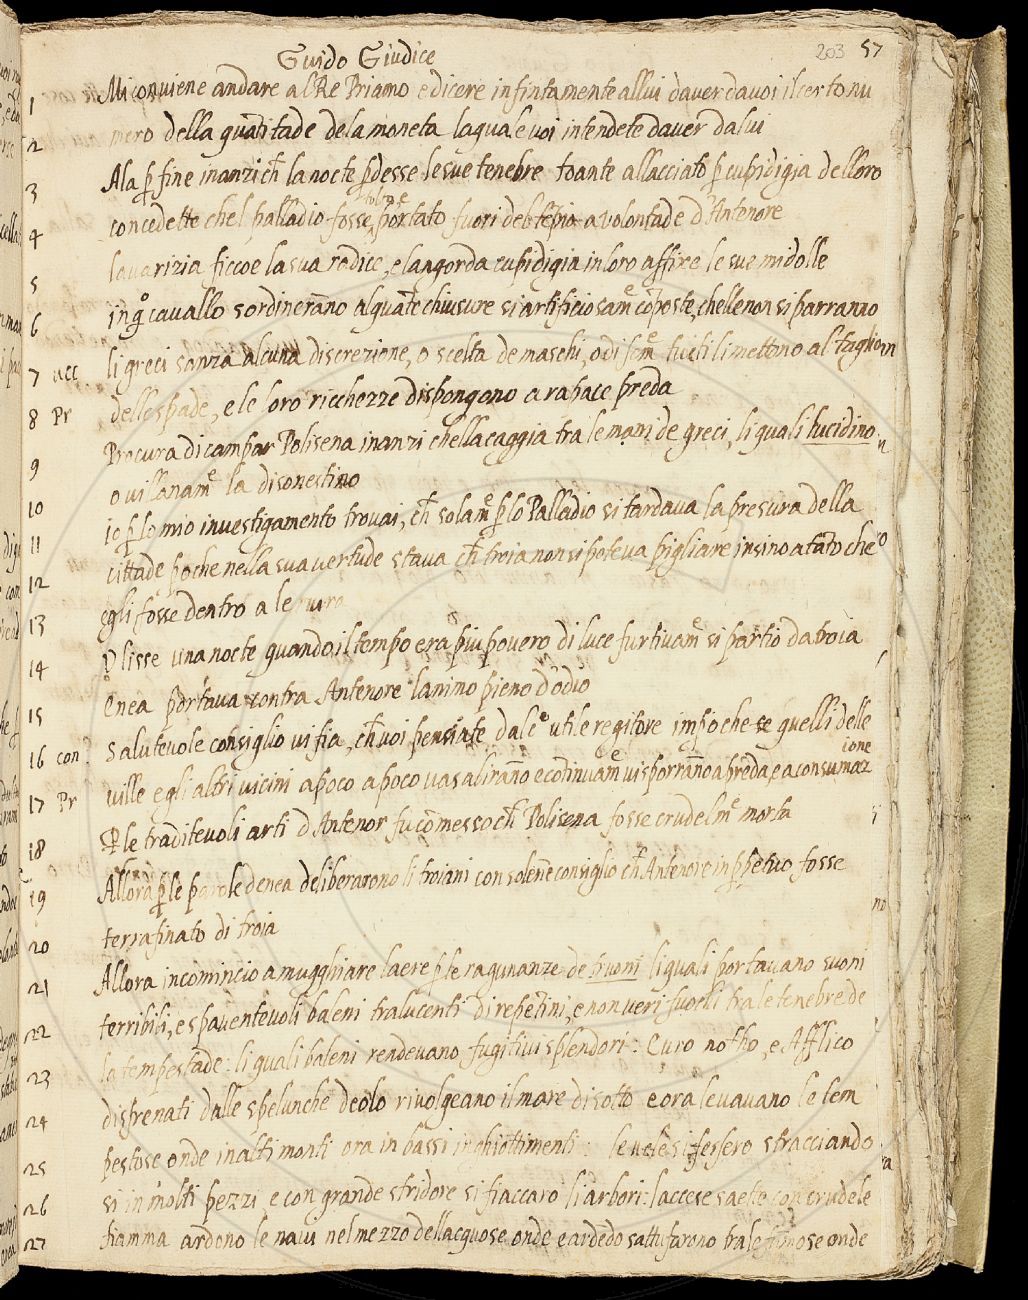 Guido Giudice
203 57
1 Mi conviene andare al Re Priamo e dicere infintamente allui daver davoi il certo nu
2 mero della quātitade dela moneta laquale voi intendete daver dalui
3 Ala ꝑ fine inanzi ch̄ la nocte ꝑdesse le sue tenebre toante allacciato ꝑ cupidigia delloro
4 concedette chel palladio fosse portato fuori del tēpio a volontade d'Antenore
5 lavarizia ficcoe la sua radice, e langorda cupidigia in loro affixe le sue midolle
6 in qͦ cavallo s ordineranno alquāte chiusure si artificiosamͤ cōposte, chelle non si parranno
7 acc li greci sanza alcuna discrezione, o scelta de maschi, o di femͤ tucti li mettono al taglio
8 Pr delle spade, e le loro ricchezze dispongono a rapace preda
Procura di campar Polisena inanzi chella caggia tra le mani de greci, li quali lucidino
9 o villanamͤ la disonestino
10 io ꝑ lo mio investigamento trovai, ch̄ solamͤ ꝑ lo Palladio si tardava la presura della
11 cittade poche nella sua vertude stava ch̄ troia non si poteva pigliare insino a tāto che
12 egli fosse dentro a le mura
13 Ulisse una nocte quando il tempo era piu povero di luce furtivamͤ si partio da troia
14 Enea portava contra Antenore lanimo pieno d'odio
15 Salutevole consiglio vi fia, ch̄ voi pensiate dalcͤ utile regitore impoche se quelli delle
16 con ville e gli altri vicini a poco a poco vasaliranno e cōtinuamͤ vi sporranno a preda, e a consumaz
ione
17 Pr Ꝑ le traditevoli arti d Antenor fu cōmesso ch̄ Polisena fosse crudelmͤ morta
18 Allora ꝑ le parole denea deliberarono li troiani con solēne consiglio ch̄ Antenore in ꝑpetuo fosse
19 terrafinato di troia
20 Allora incomincio a mugghiare laere ꝑ le ragunanze de truoni li quali portavano suoni
21 terribili, e spaventevoli baleni tralucenti di repētini, e non veri fuochi tra le tenebre de
22 la tempestade: li quali baleni rendevano fugitivi splendori: Euro notho, e Afflico
23 disfrenati dalle spelunche deolo rivolgeano il mare di sotto e ora levavano le tem
24 pestose onde in alti monti ora in bassi inghiottimenti: le vele si fessero stracciando
25 si in molti pezzi e con grande stridore si fiaccaro li arbori: laccese saette con crudele
26 fiamma ardono le navi nel mezzo dellacquose onde e ardēdo sattufarono tra le onde
27